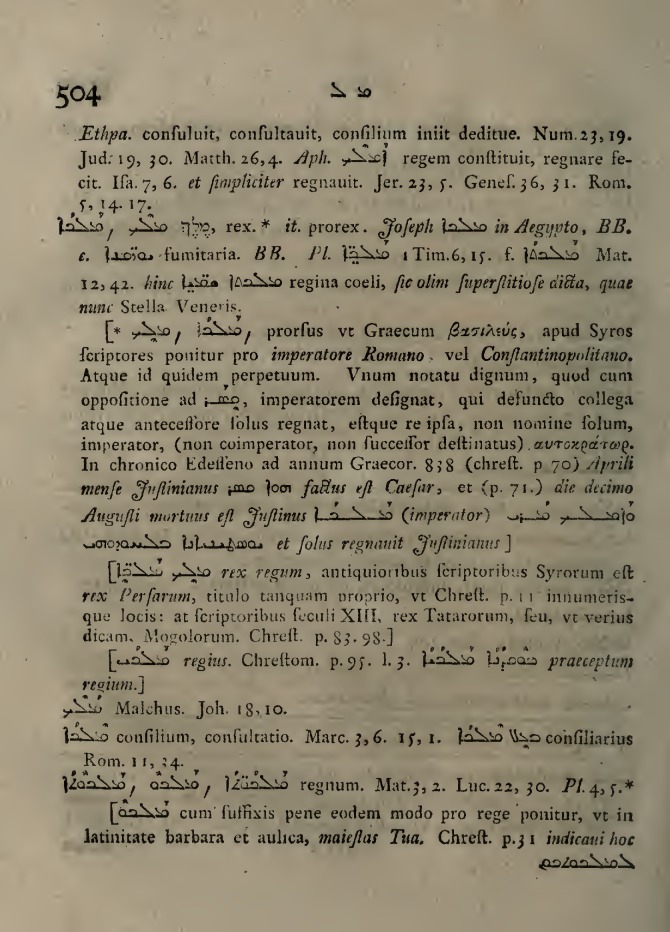 504 ܡܠ
Ethpa. conſuluit, conſultauit, conſilium iniit deditue. Num. 23, 19.
Jud. 19, 30. Matth. 26, 4. Aph. ܐܡܠܟ regem conſtituit, regnare fe-
cit. Iſa. 7, 6. et ſimpliciter regnauit. Jer. 23, 5. Geneſ. 36, 31. Rom.
5, 14. 17.
ܡܠܟ, ܡܠܟܐ, rex. * it. prorex. Joſeph ܡܠܟܐ in Aegypto, BB.
fumitaria. BB. Pl. ܡܠܟܐ 1 Tim. 6, 15. f. ܡܠܟܬܐ Mat.
12, 42. hinc ܡܠܟܬ ܫܡܝܐ regina coeli, ſic olim ſuperſtitioſe dicta, quae
nunc Stella Veneris.
[* ܡܠܟ, ܡܠܟܐ, prorſus vt Graecum βασιλεύς, apud Syros
ſcriptores ponitur pro imperatore Romano vel Conſtantinopolitano.
Atque id quidem perpetuum. Vnum notatu dignum, quod cum
oppoſitione ad ܩܣܪ, imperatorem deſignat, qui defuncto collega
atque anteceſſore ſolus regnat, eſtque re ipſa, non nomine ſolum,
imperator, (non coimperator, non ſucceſſor deſtinatus) αυτοκράτωρ.
In chronico Edeſſeno ad annum Graecor. 838 (chreſt. p 70) Aprili
menſe Juſtinianus ܗܘܐ ܩܣܪ factus eſt Caeſar, et (p. 71.) die decimo
Auguſti mortuus eſt Juſtinus ܡܠܟܐ (imperator)
et ſolus regnauit Juſtinianus ]
[ܡܠܟ ܡܠܟܐ rex regum, antiquioribus ſcriptoribus Syrorum eſt
rex Perſarum, titulo tanquam proprio, vt Chreſt. p. 11 innumeris-
que locis: at ſcriptoribus ſeculi XIII, rex Tatarorum, ſeu, vt verius
dicam, Mogolorum. Chreſt. p. 83. 98.]
[ܡܠܟܝ regius. Chreſtom. p. 95. l. 3. ܦܘܩܕܢܐ ܡܠܟܝܐ praeceptum
regium.]
ܡܠܟ Malchus. Joh. 18, 10.
ܡܠܟܐ conſilium, conſultatio. Marc. 3, 6. 15, 1. ܒܥܠ ܡܠܟܐ conſiliarius
Rom. 11, 34.
ܡܠܟܘܬܐ, ܡܠܟܘ, regnum. Mat. 3, 2. Luc. 22, 30. Pl. 4, 5. *
[ܡܠܟܘ cum ſuffixis pene eodem modo pro rege ponitur, vt in
latinitate barbara et aulica, maieſtas Tua. Chreſt. p. 31 indicaui hoc
ܠܡܠܟܘܬܟܘܢ